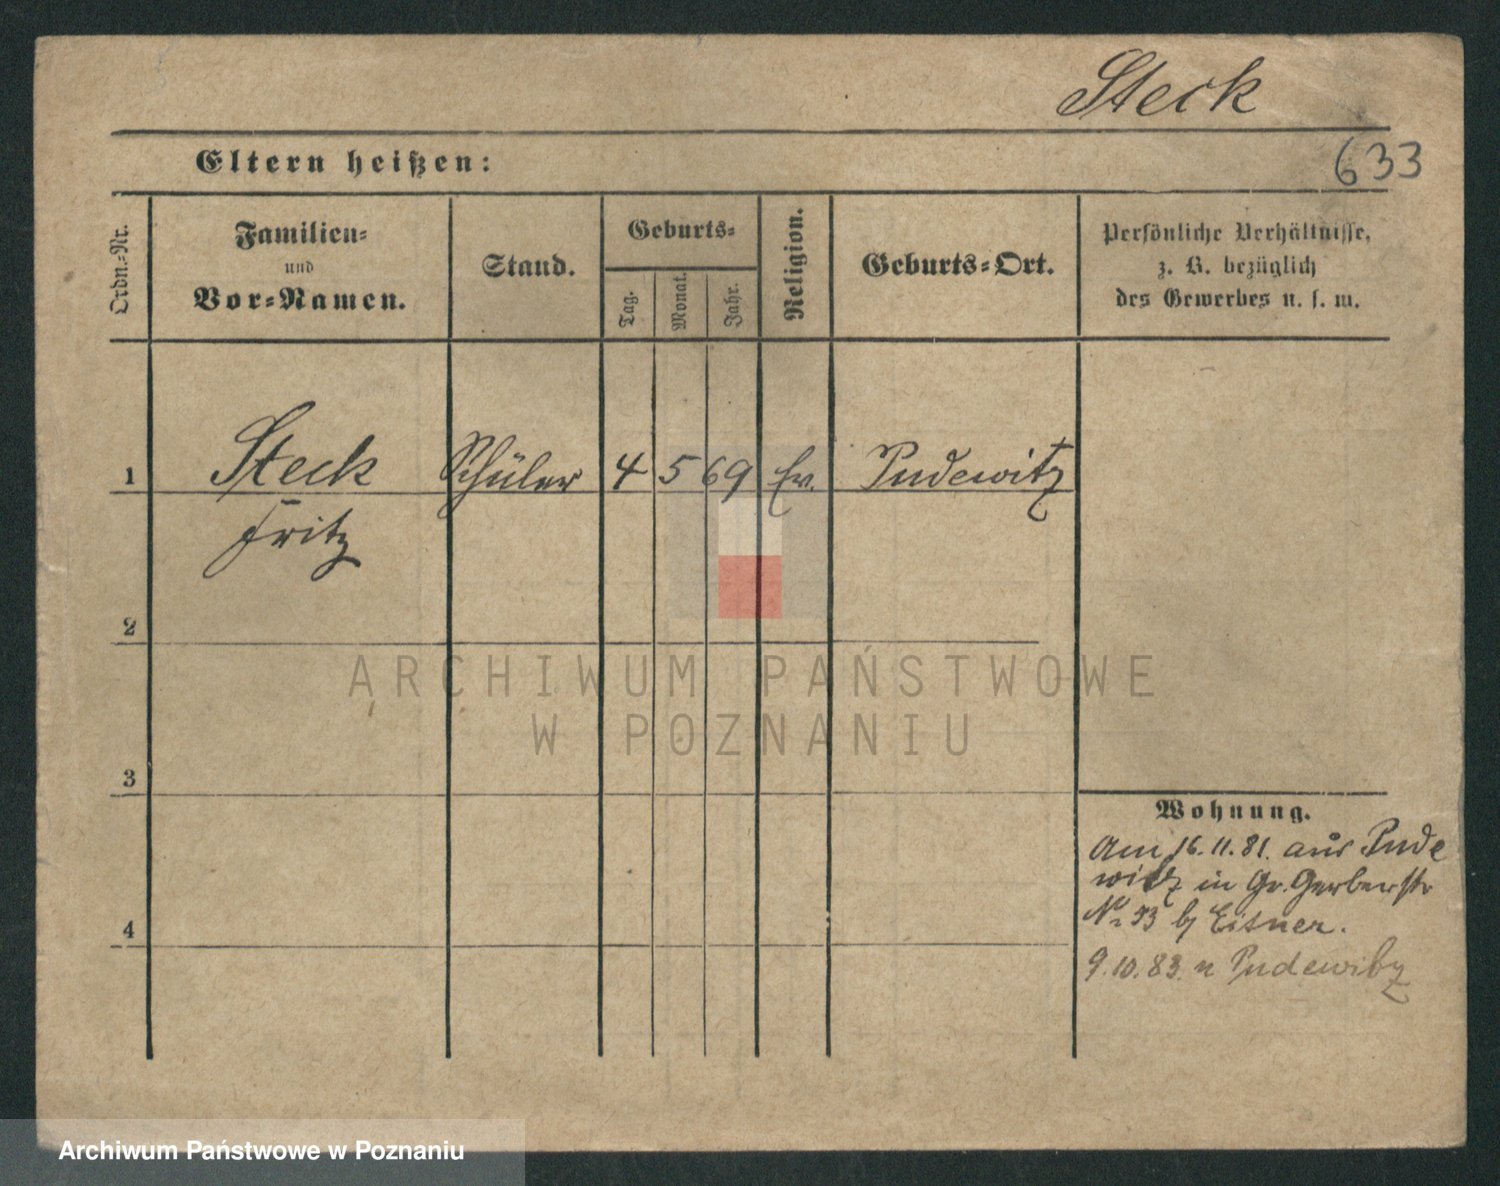 Steck
633
Eltern heißen:
Ordn.-Nr.
Familien-
und
Vor-Namen.
Stand.
Geburts-
Tag.
Monat.
Jahr.
Religion.
Geburts-Ort.
Persönliche Verhältnisse,
z. B. bezüglich
des Gewerbes u. s. w.
1 Steck Schüler 4 5 69 Ev. Pudewitz
Fritz
2
3
4
Wohnung.
Am 16.11.81. aus Pude
witz in Gr. Gerberstr
No 33 b/ Eisner.
9.10.83. n Pudewitz
ARCHIWUM PAŃSTWOWE
W POZNANIU
Archiwum Państwowe w Poznaniu